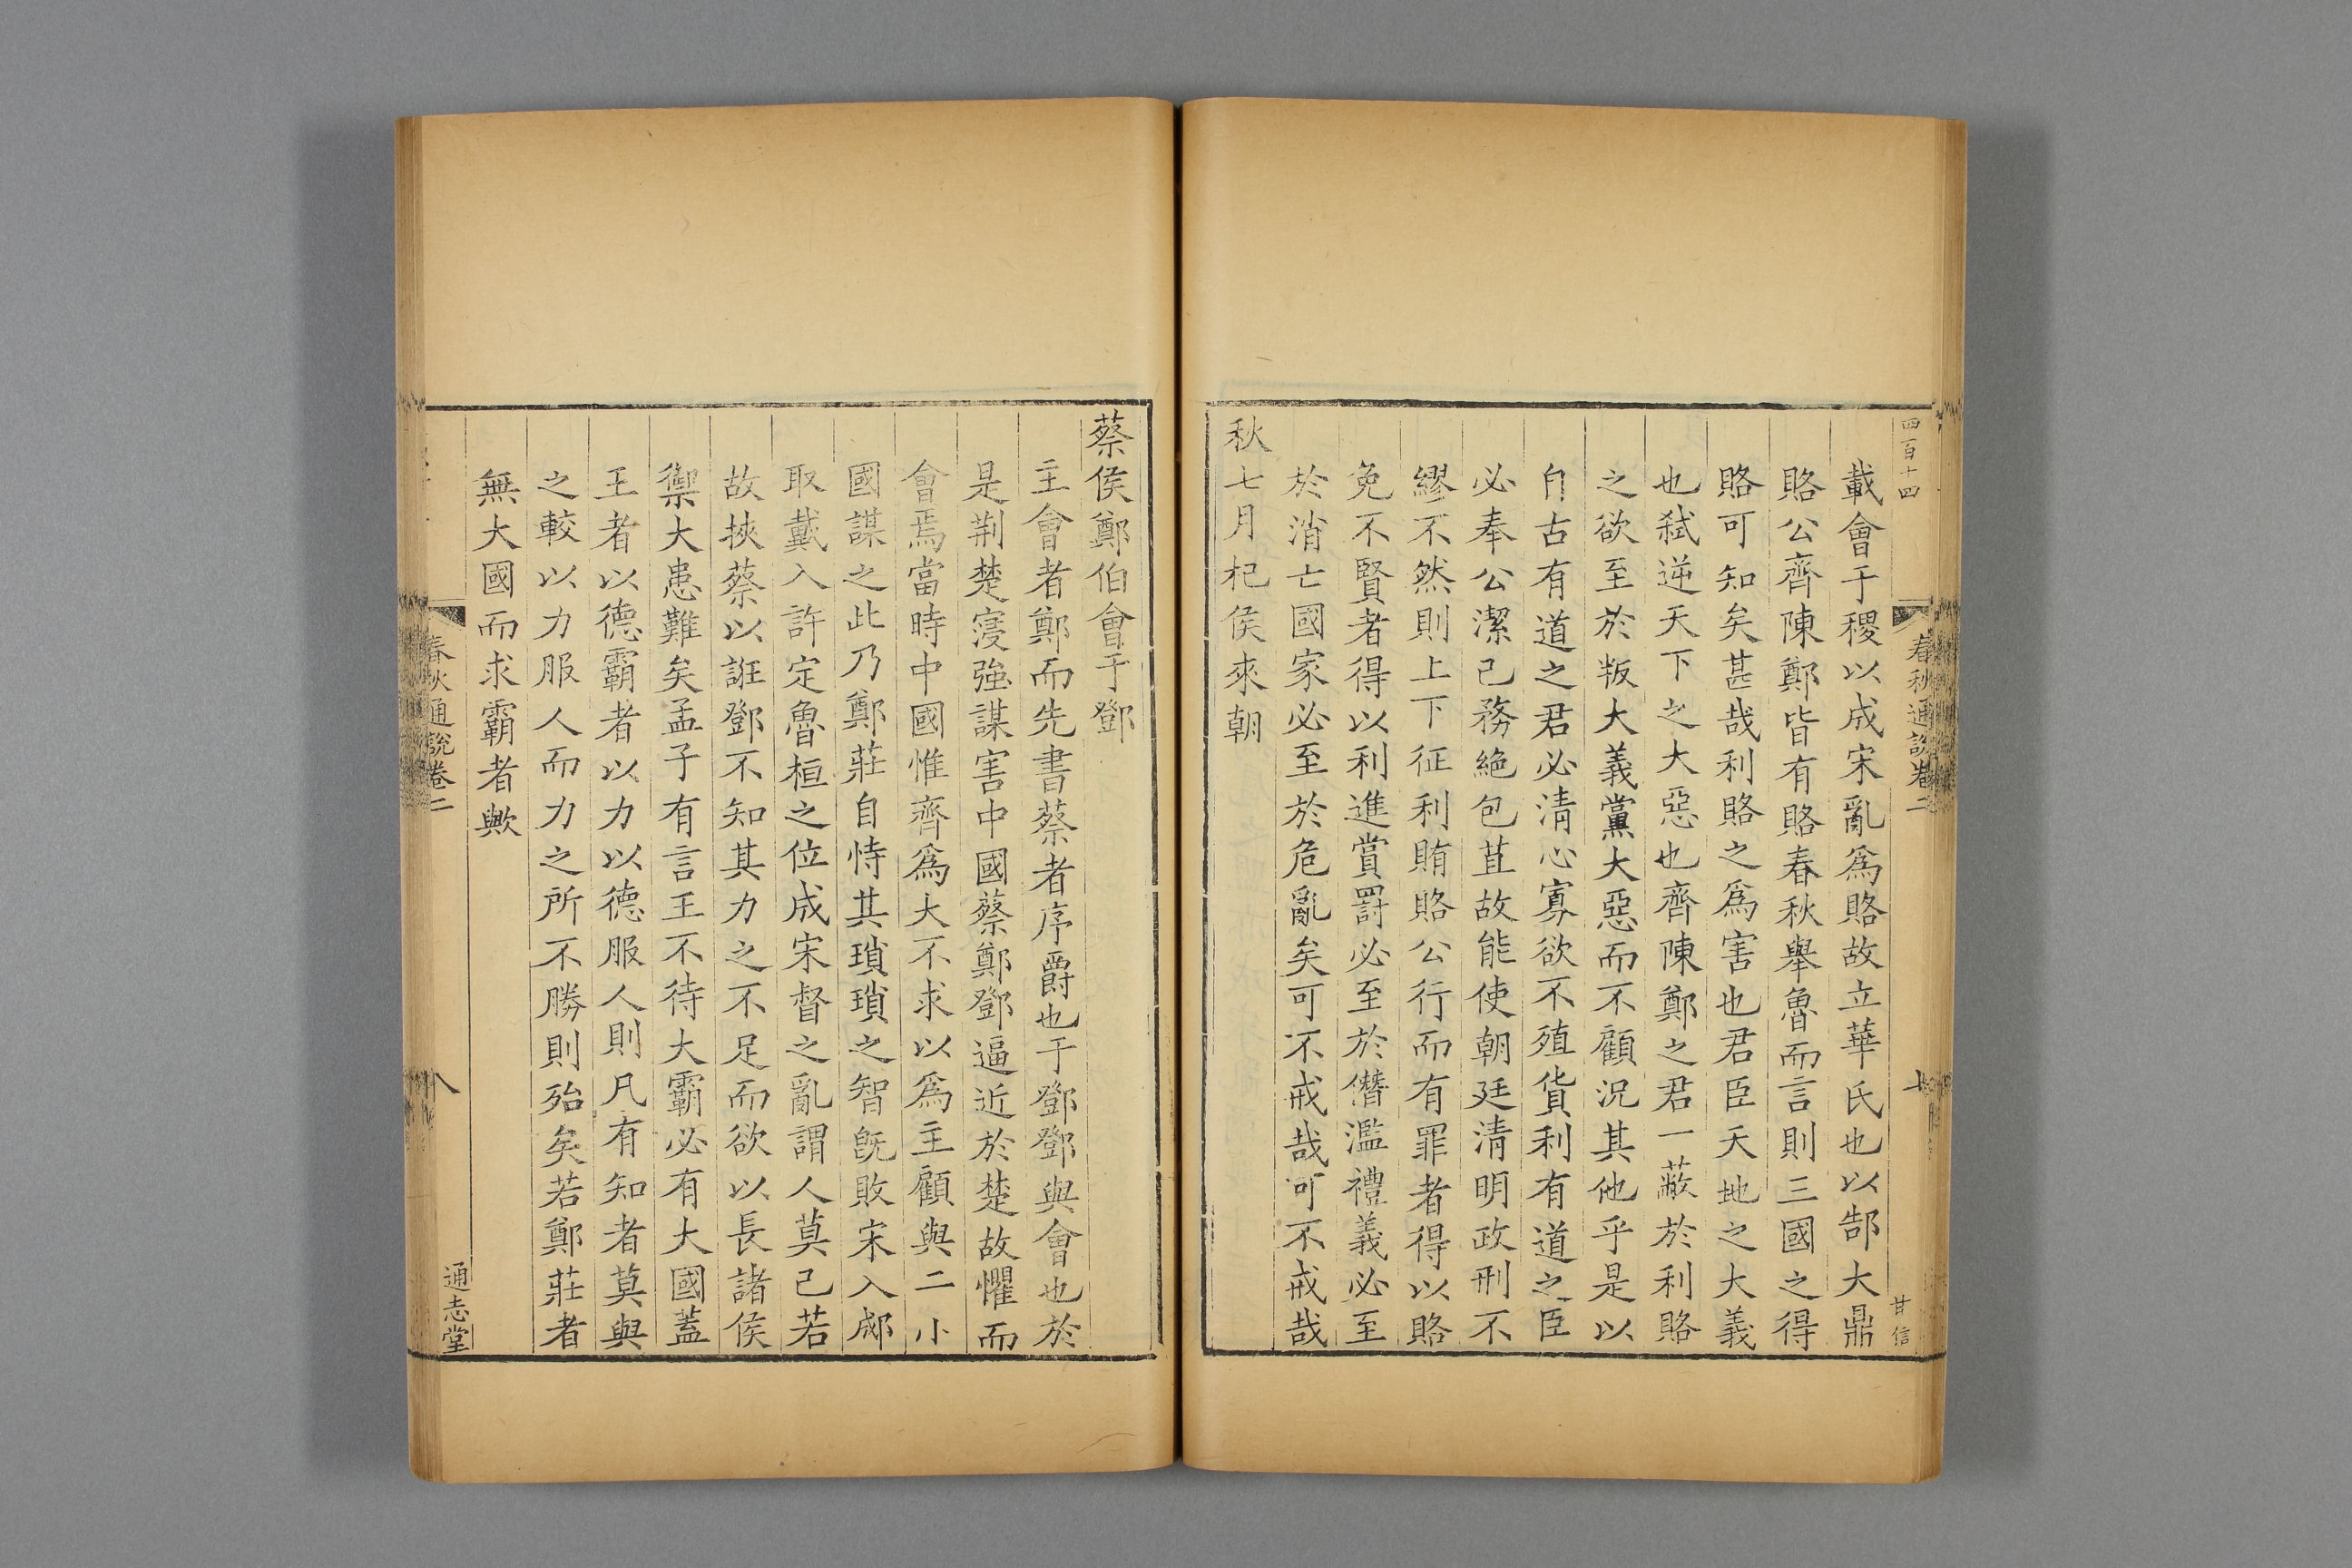 四百十四
春秋通說卷二
甘信
載會于稷以成宋亂爲賂故立華氏也以郜大鼎
賂公齊陳鄭皆有賂春秋舉魯而言則三國之得
賂可知矣甚哉利賂之爲害也君臣天地之大義
也弑逆天下之大惡也齊陳鄭之君一蔽於利賂
之欲至於叛大義黨大惡而不顧況其他乎是以
自古有道之君必清心寡欲不殖貨利有道之臣
必奉公潔己務絶包苴故能使朝廷清明政刑不
繆不然則上下征利賄賂公行而有罪者得以賂
免不賢者得以利進賞罰必至於僭濫禮義必至
於消亡國家必至於危亂矣可不戒哉可不戒哉
秋七月杞侯來朝
蔡侯鄭伯會于鄧
主會者鄭而先書蔡者序爵也于鄧鄧與會也於
是荆楚寖強謀害中國蔡鄭鄧逼近於楚故懼而
會焉當時中國惟齊爲大不求以爲主顧與二小
國謀之此乃鄭莊自恃其瑣瑣之智旣敗宋入郕
取戴入許定魯桓之位成宋督之亂謂人莫己若
故挾蔡以誑鄧不知其力之不足而欲以長諸侯
禦大患難矣孟子有言王不待大霸必有大國蓋
王者以德霸者以力以德服人則凡有知者莫與
之較以力服人而力之所不勝則殆矣若鄭莊者
無大國而求霸者歟
春秋通說卷二
八
通志堂